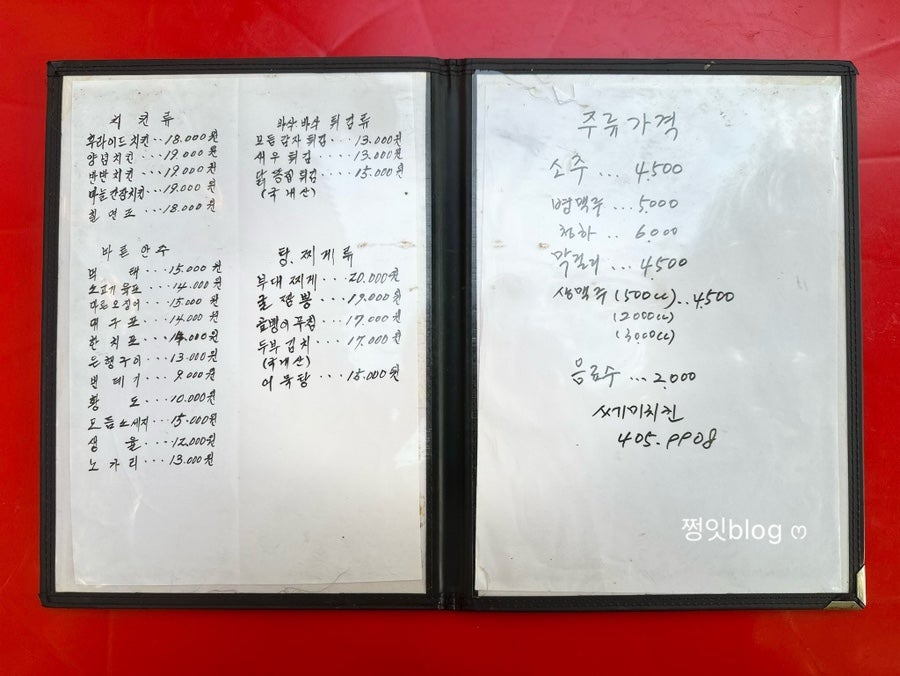 치킨류
후라이드치킨..18.000원
양념치킨...19.000원
반반치킨...19.000원
마늘간장치킨..19.000원
칠연포...18.000원
마른안주
먹태...15.000원
소고기육포...14.000원
마른오징어...15.000원
대구포...14.000원
한치포...14.000원
은행구이...13.000원
번데기...9.000원
황도...10.000원
모듬소세지...15.000원
생율...12.000원
노가리...13.000원
바삭바삭튀김류
모듬감자튀김...13.000원
새우튀김...13.000원
닭똥집튀김...15.000원
(국내산)
탕.찌게류
부대찌게...20.000원
굴짬뽕...19.000원
골뱅이무침...17.000원
두부김치...17.000원
(국내산)
어묵탕...15.000원
주류가격
소주...4.500
병맥주...5.000
청하..6.000
막걸리...4500
생맥주(500cc)..4,500
(2000cc)
(3000cc)
음료수...2.000
쓰기미치킨
405.9908
쩡잇blog ෆ